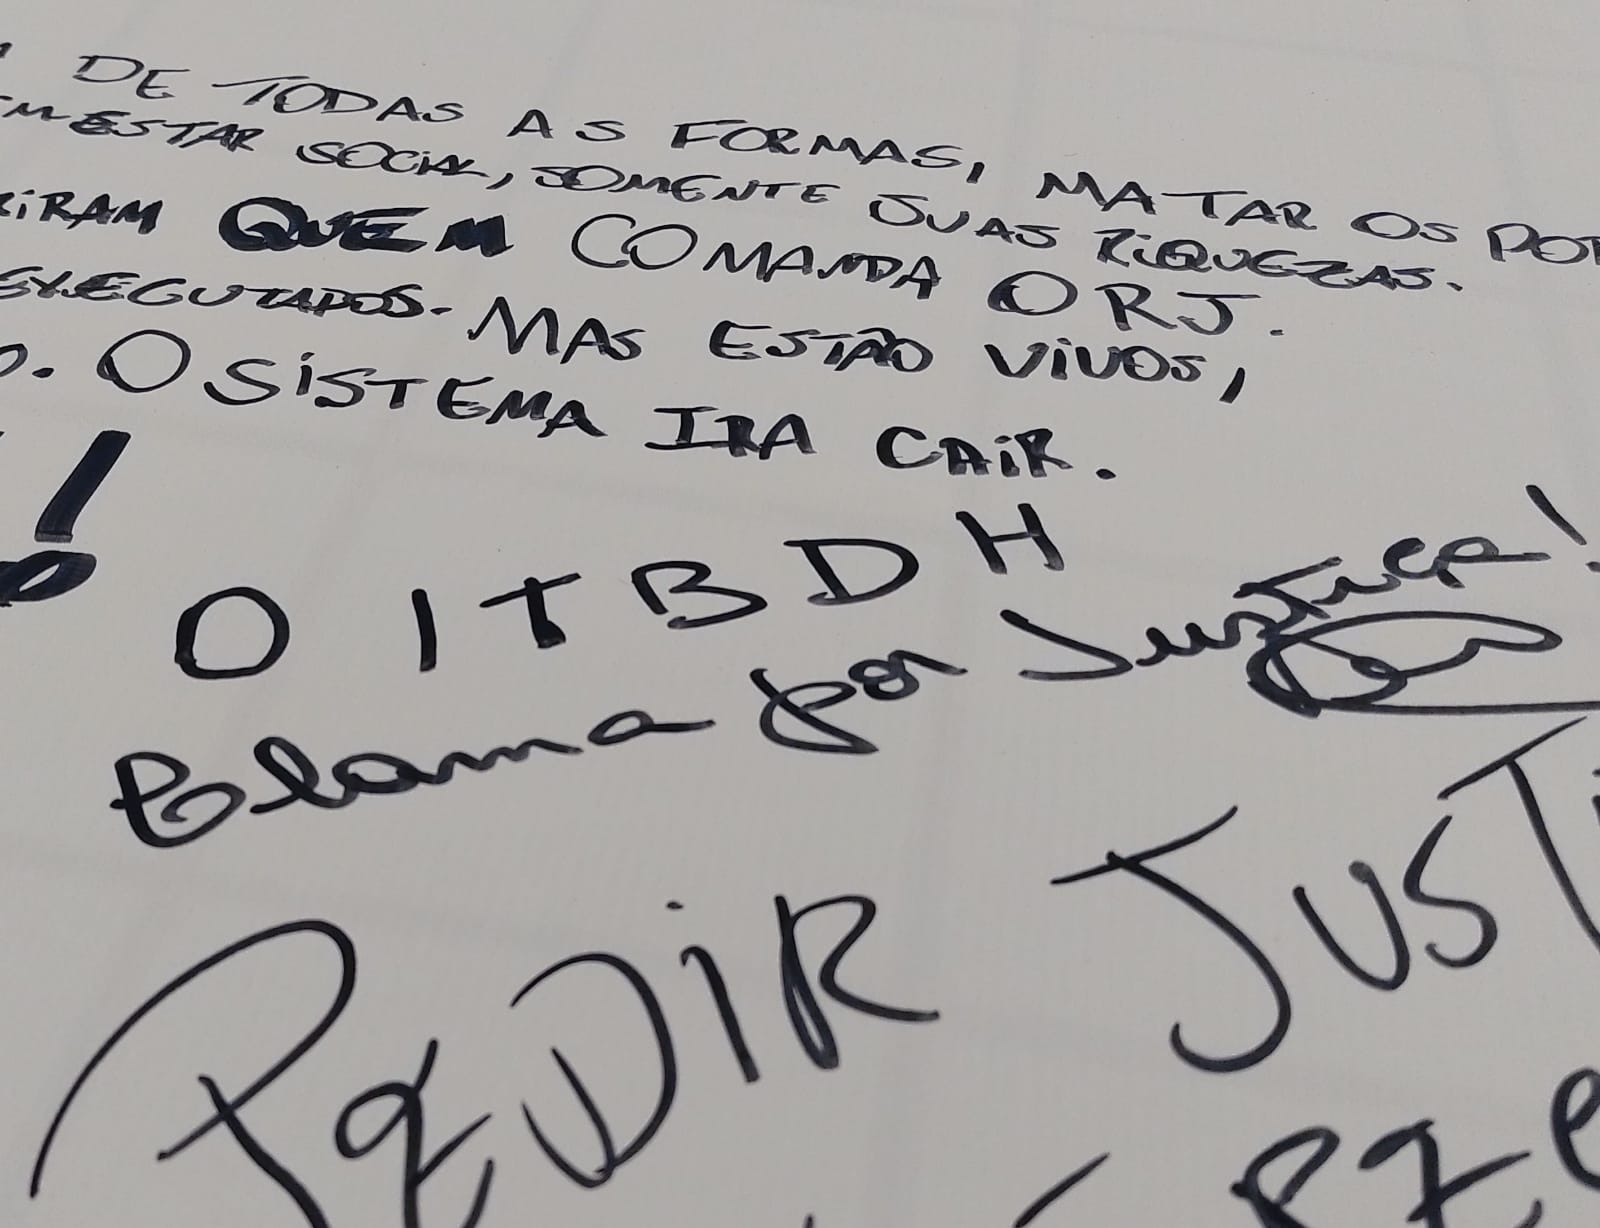 DE TODAS AS FORMAS, MATAR OS POB
EM ESTAR SOCIAL, SOMENTE SUAS RIQUEZAS.
RIRAM QUEM COMANDA O RJ.
EXEGUTADOS. MAS ESTÃO VIVOS,
O. O SISTEMA IRA CAIR.
!
O ITBDH
Clama por Justiça!
PEDIR JUSTI